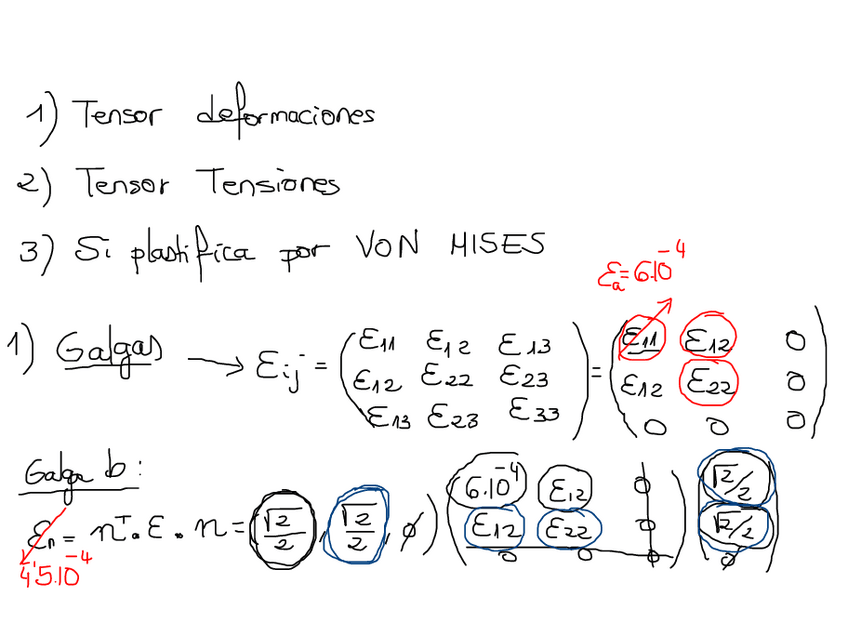 1) Tensor deformaciones
2) Tensor Tensiones
3) Si plastifica por VON MISES
εa = 6·10⁻⁴
1) Galgas → εij = ( ε11 ε12 ε13 ) = ( ε11 ε12 0 )
( ε12 ε22 ε23 ) ( ε12 ε22 0 )
( ε13 ε23 ε33 ) ( 0 0 0 )
Galga b:
εn = nᵀ · ε · n = ( √2/2 , √2/2 , 0 ) ( 6·10⁻⁴ ε12 0 ) ( √2/2 )
( ε12 ε22 0 ) ( √2/2 )
( 0 0 0 ) ( 0 )
4'5·10⁻⁴